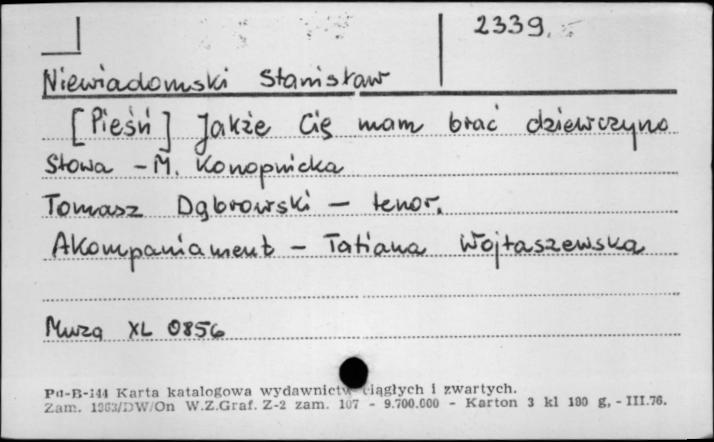 2339.
Niewiadomski Stanisław
[Pieśń] Jakże Cię mam brać dziewczyno
Słowa - M. Konopnicka
Tomasz Dąbrowski - tenor.
Akompaniament - Tatiana Wojtaszewska
Muza XL 0856
Pu-B-144 Karta katalogowa wydawnictw ciągłych i zwartych.
Zam. 1363/DW/On W.Z.Graf. Z-2 zam. 107 - 9.700.000 - Karton 3 kl 180 g, - III.76.